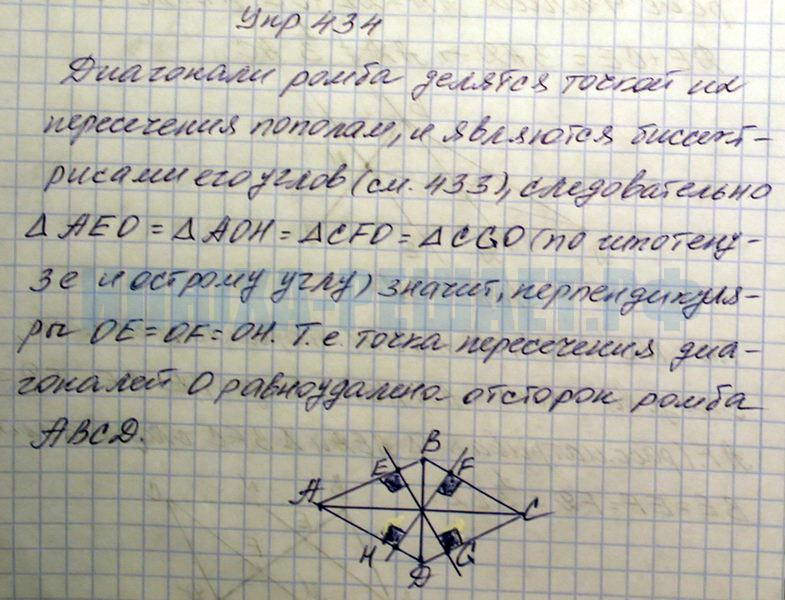 Упр 434
Диагонали ромба делятся точкой их
пересечения пополам, и являются биссект-
рисами его углов (см. 433), следовательно
△ AEO = △ AOH = △ CFO = △ CGO (по гипотену-
зе и острому углу) значит, перпендикуля-
ры OE = OF = OH. Т.е точка пересечения диа-
гоналей O равноудалена от сторон ромба
ABCD.
B
E F
A C
H G
D